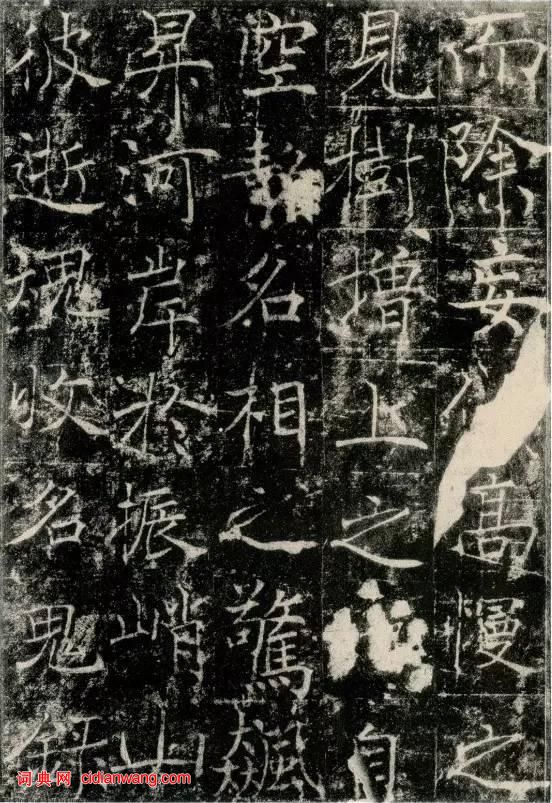 而除妄高慢之
見樹增上之自
空名相之驚飆
昇河岸於振峭山
彼逝魂收名鬼
词典网 cidianwang.com